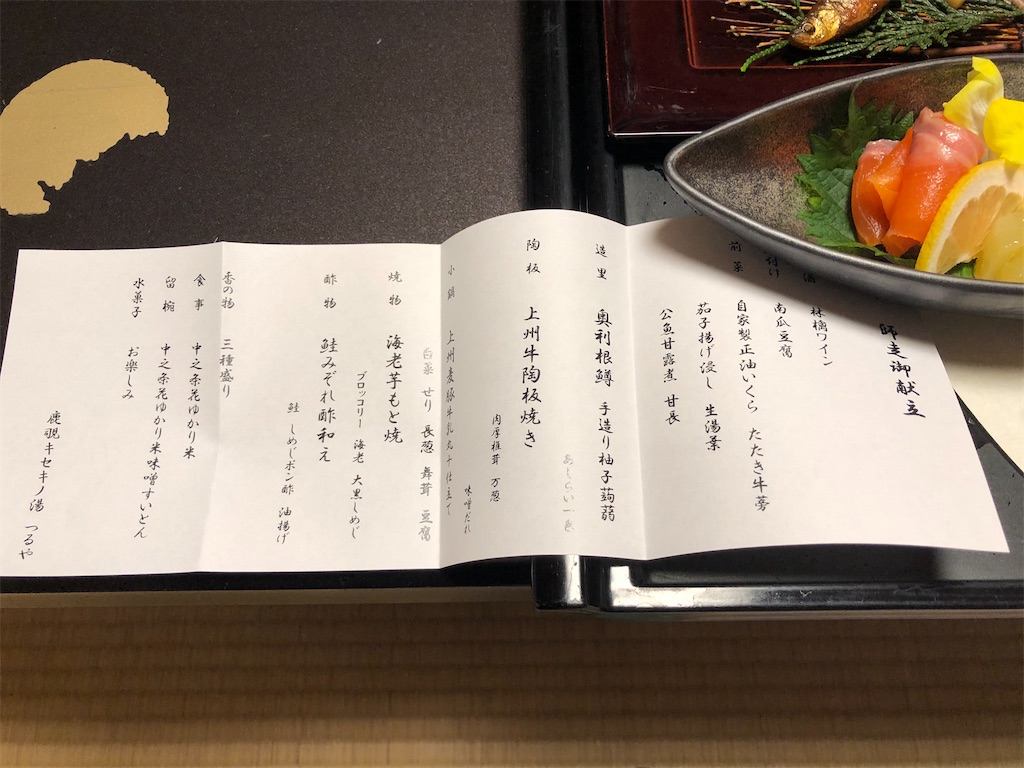 師走御献立
酒 林檎ワイン
付け 南瓜豆腐
前菜 自家製正油いくら たたき牛蒡
茄子揚げ浸し 生湯葉
公魚甘露煮 甘長
造里 奥利根鱒 手造り柚子蒟蒻
あしらい一色
陶板 上州牛陶板焼き
肉厚椎茸 万葱
味噌だれ
小鍋 上州麦豚牛乳丸十仕立て
白菜 せり 長葱 舞茸 豆腐
焼物 海老芋もと焼
ブロッコリー 海老 大黒しめじ
酢物 鮭みぞれ酢和え
鮭 しめじポン酢 油揚げ
香の物 三種盛り
食事 中之条花ゆかり米
留椀 中之条花ゆかり米味噌すいとん
水菓子 お楽しみ
鹿覗キセキノ湯 つるや